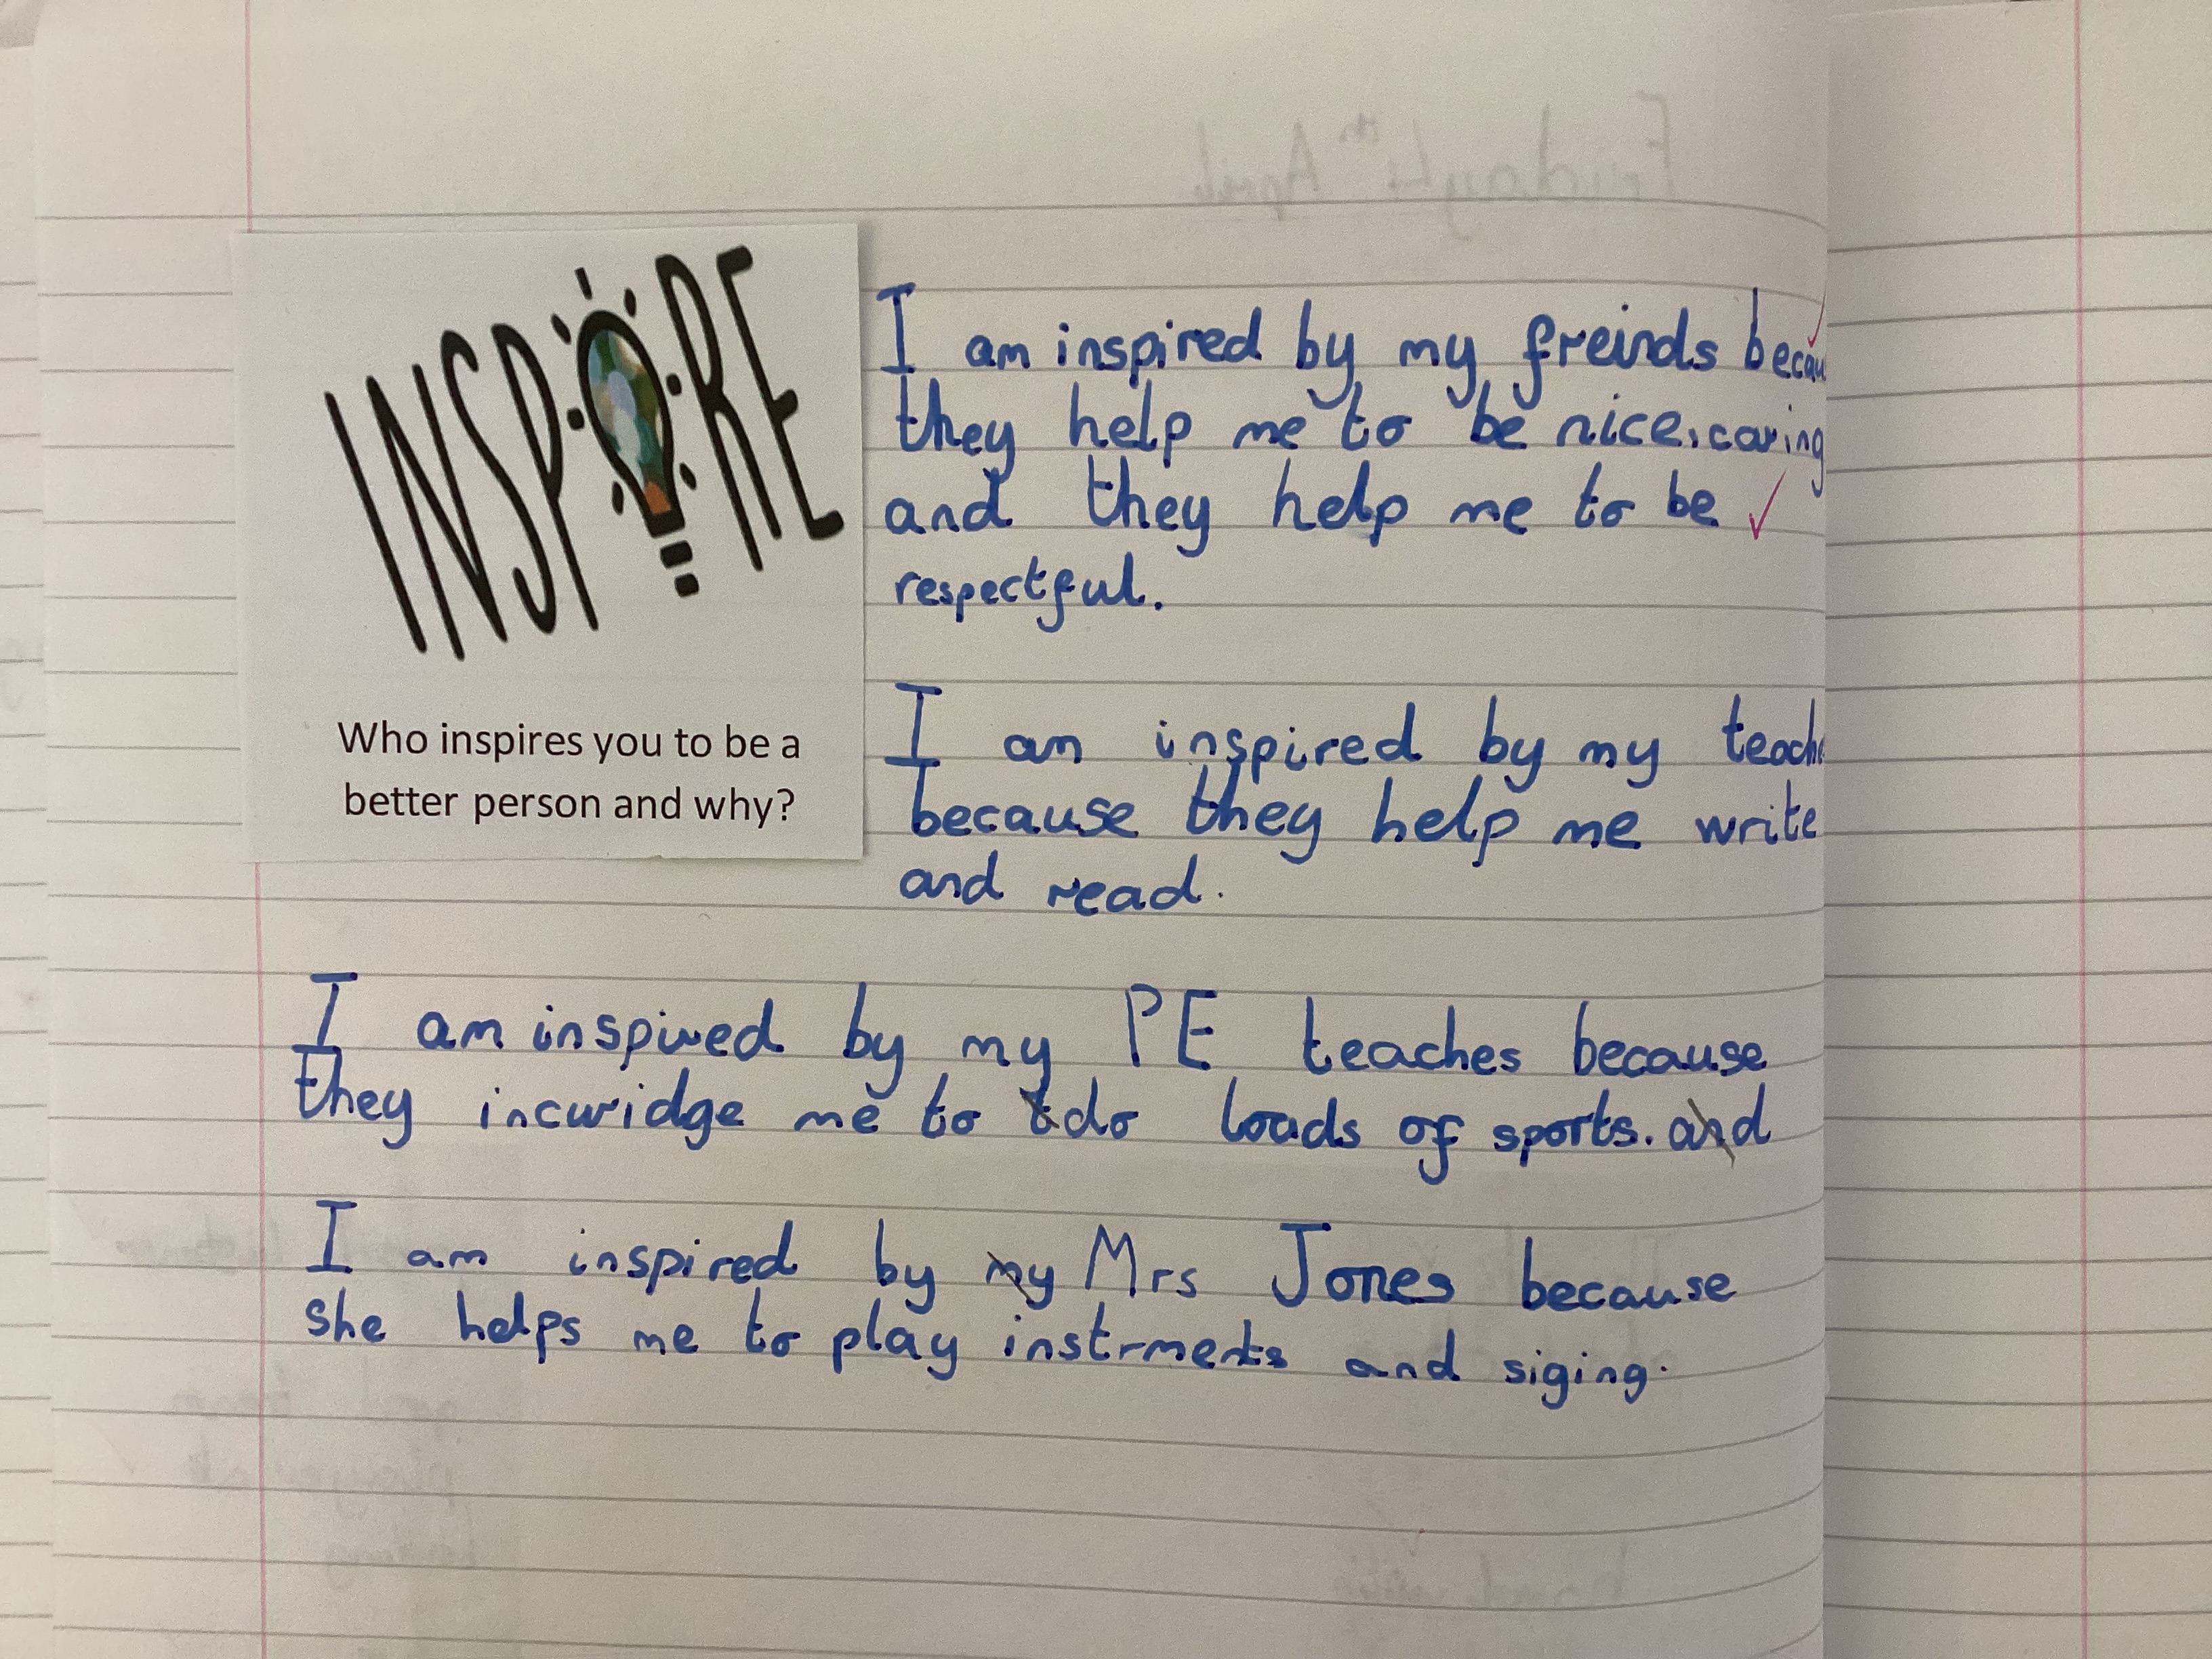 INSPIRE
Who inspires you to be a
better person and why?
I am inspired by my freinds becau
they help me to be nice, caring
and they help me to be
respectful.
I am inspired by my teache
because they help me write
and read.
I am inspired by my PE teaches because
they incuridge me to do loads of sports. and
I am inspired by my Mrs Jones because
she helps me to play instrments and siging.
Friday 4th April